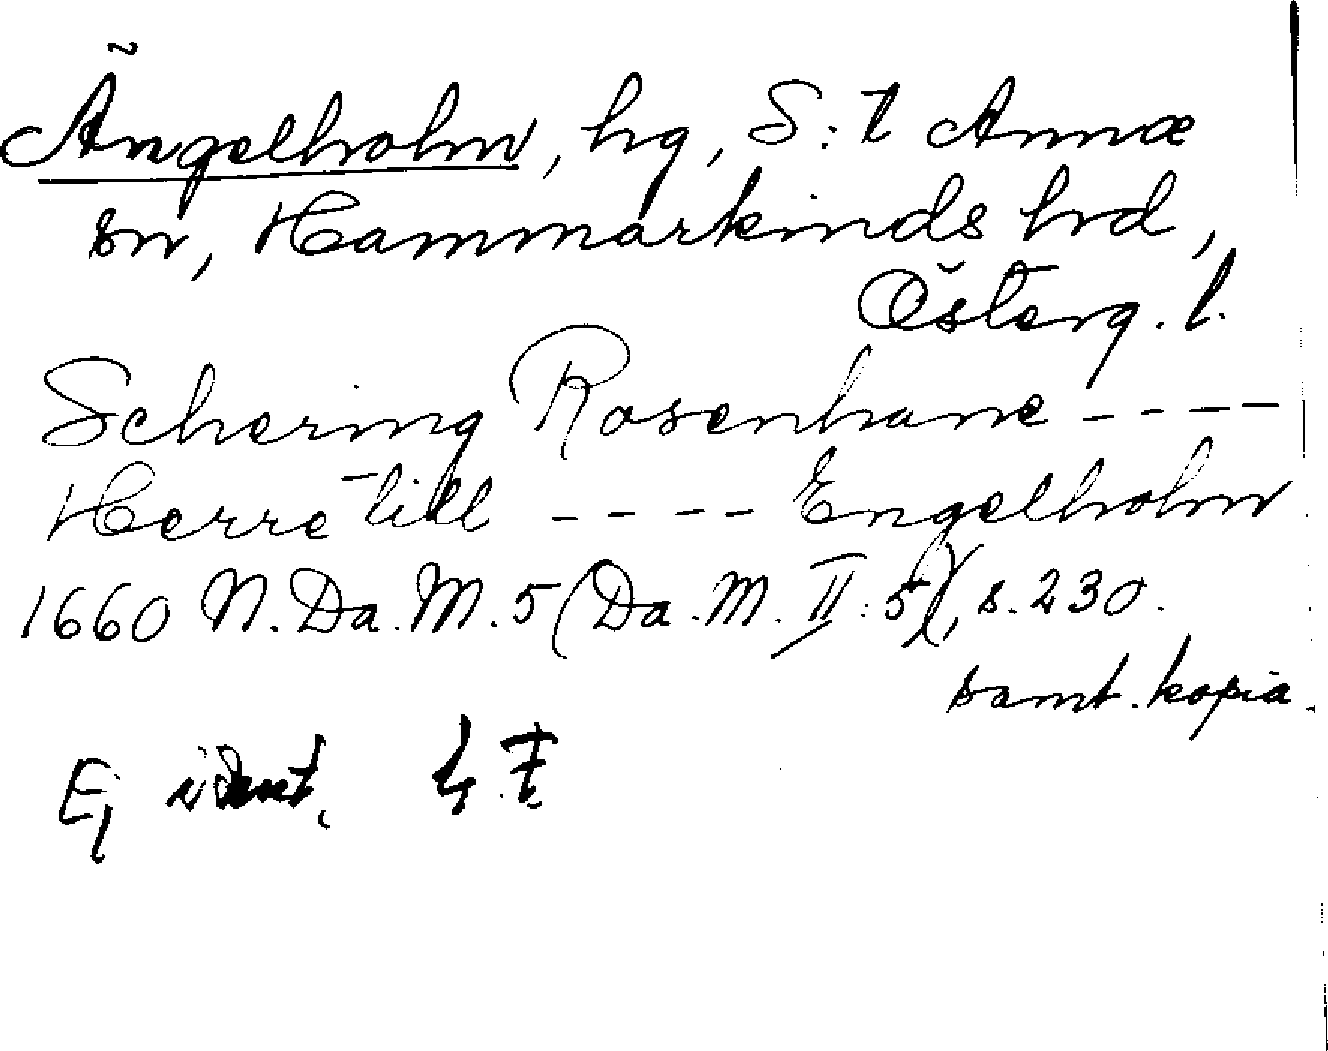 Ängelholm, hg, S:t Annæ
sn, Hammarkinds hrd,
Österg. l.
Schering Rosenhane - - - -
Herre till - - - - Engelholm.
1660 N. Da. M. 5 (Da. M. II: 5), s. 230.
samt. kopia.
Ej ident.